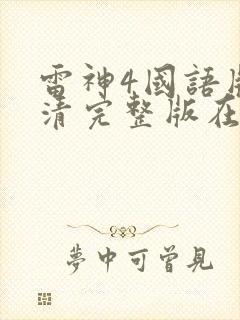 雷神4國語
清完整版在
夢中可曾見